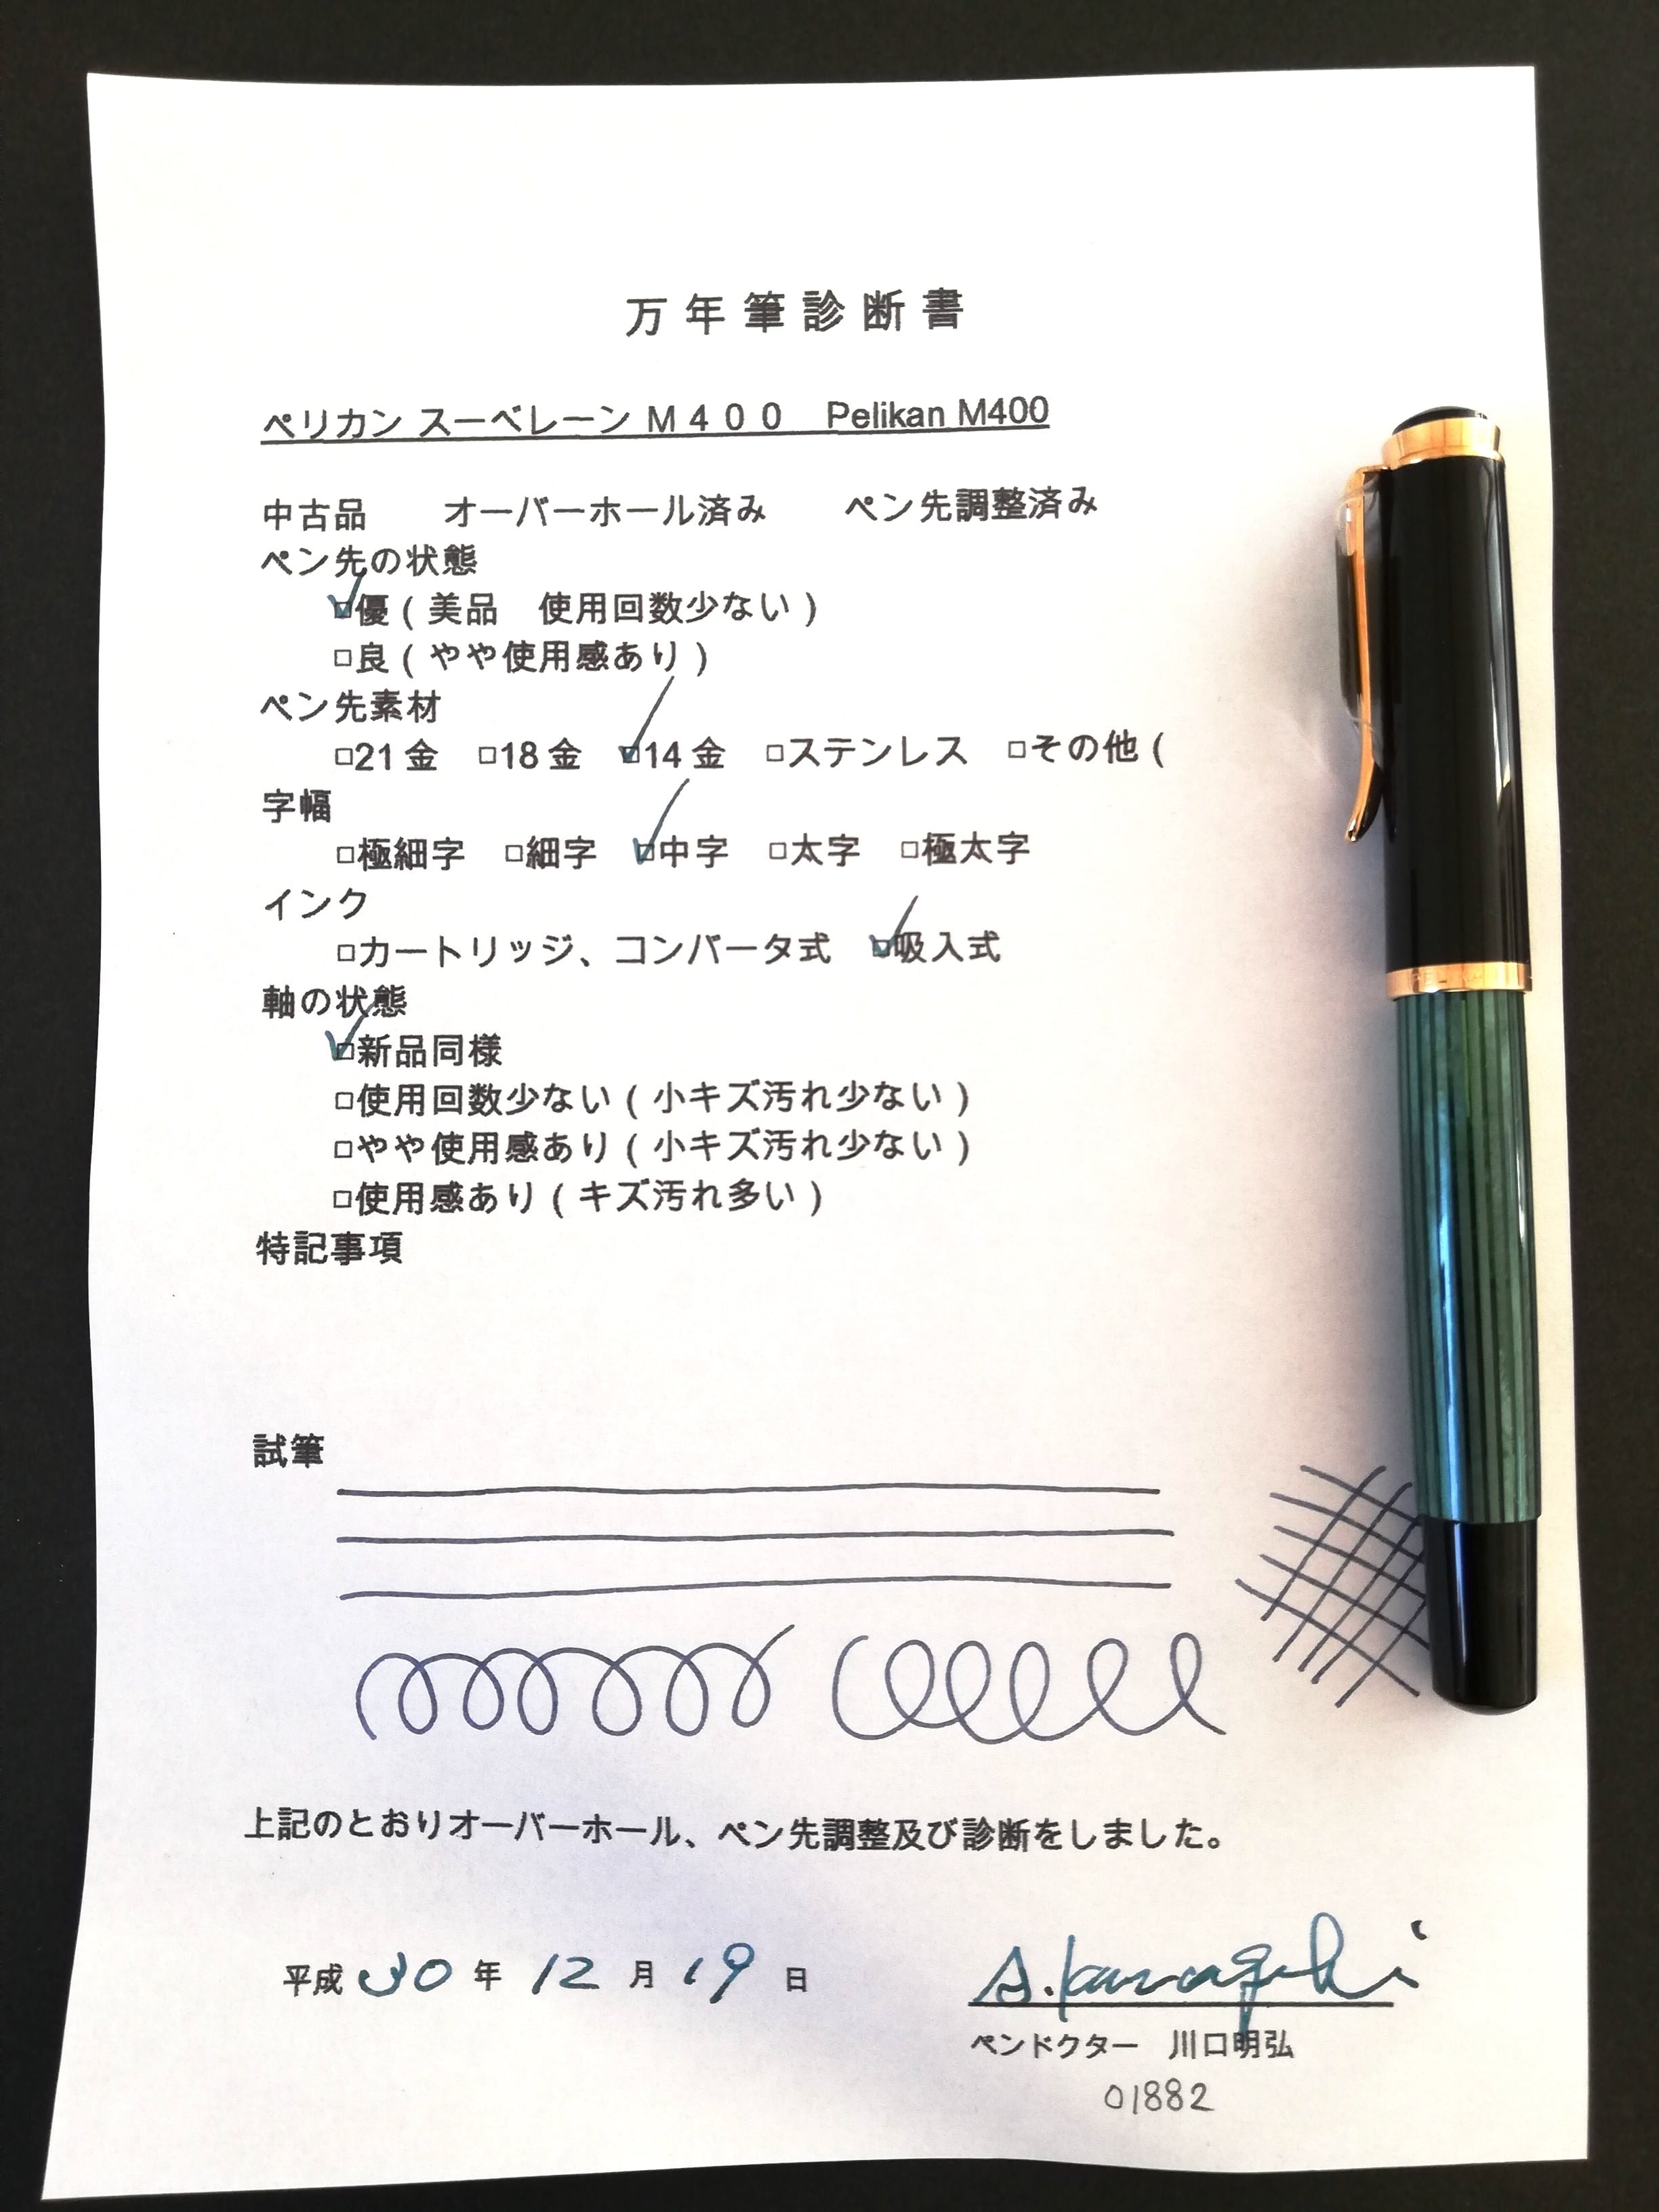 万年筆診断書
ペリカン スーベレーン M400 Pelikan M400
中古品 オーバーホール済み ペン先調整済み
ペン先の状態
☑優(美品 使用回数少ない)
□良(やや使用感あり)
ペン先素材
□21金 □18金 ☑14金 □ステンレス □その他(
字幅
□極細字 □細字 ☑中字 □太字 □極太字
インク
□カートリッジ、コンバータ式 ☑吸入式
軸の状態
☑新品同様
□使用回数少ない(小キズ汚れ少ない)
□やや使用感あり(小キズ汚れ少ない)
□使用感あり(キズ汚れ多い)
特記事項
試筆
上記のとおりオーバーホール、ペン先調整及び診断をしました。
平成30年12月19日
A.Kawaguchi
ペンドクター 川口明弘
01882